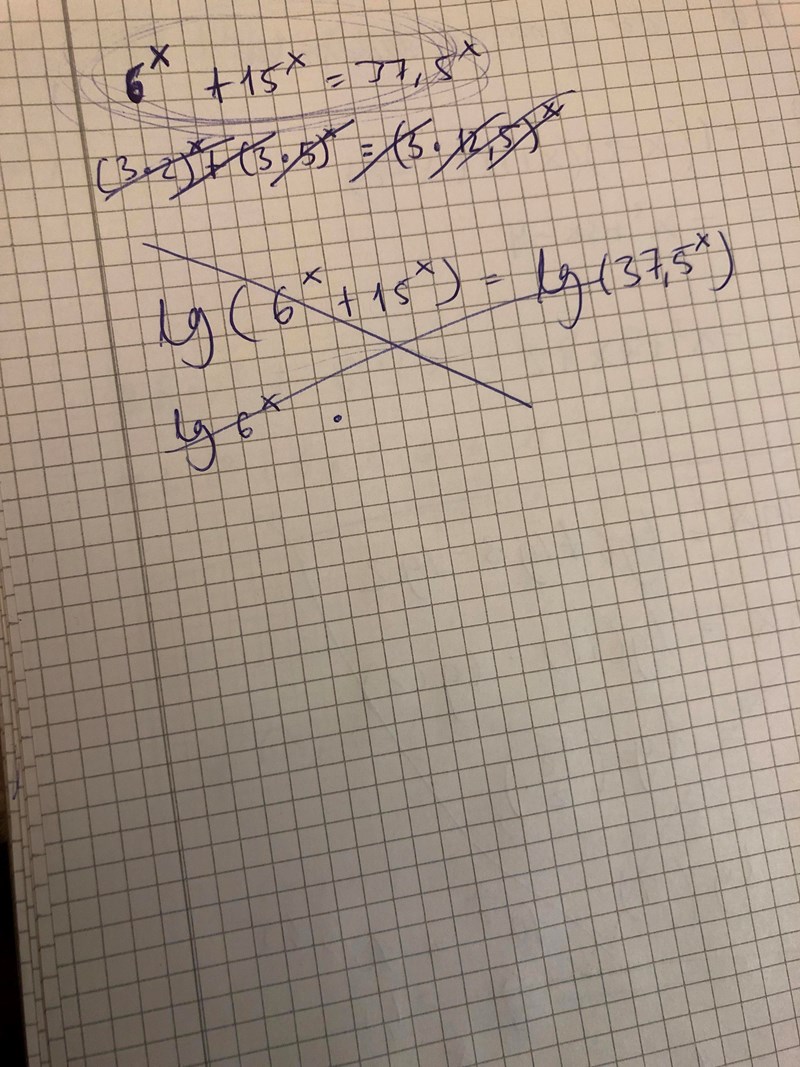 6^x + 15^x = 37,5^x
(3·2)^x + (3·5)^x = (3·12,5)^x
lg(6^x + 15^x) = lg(37,5^x)
lg 6^x ·